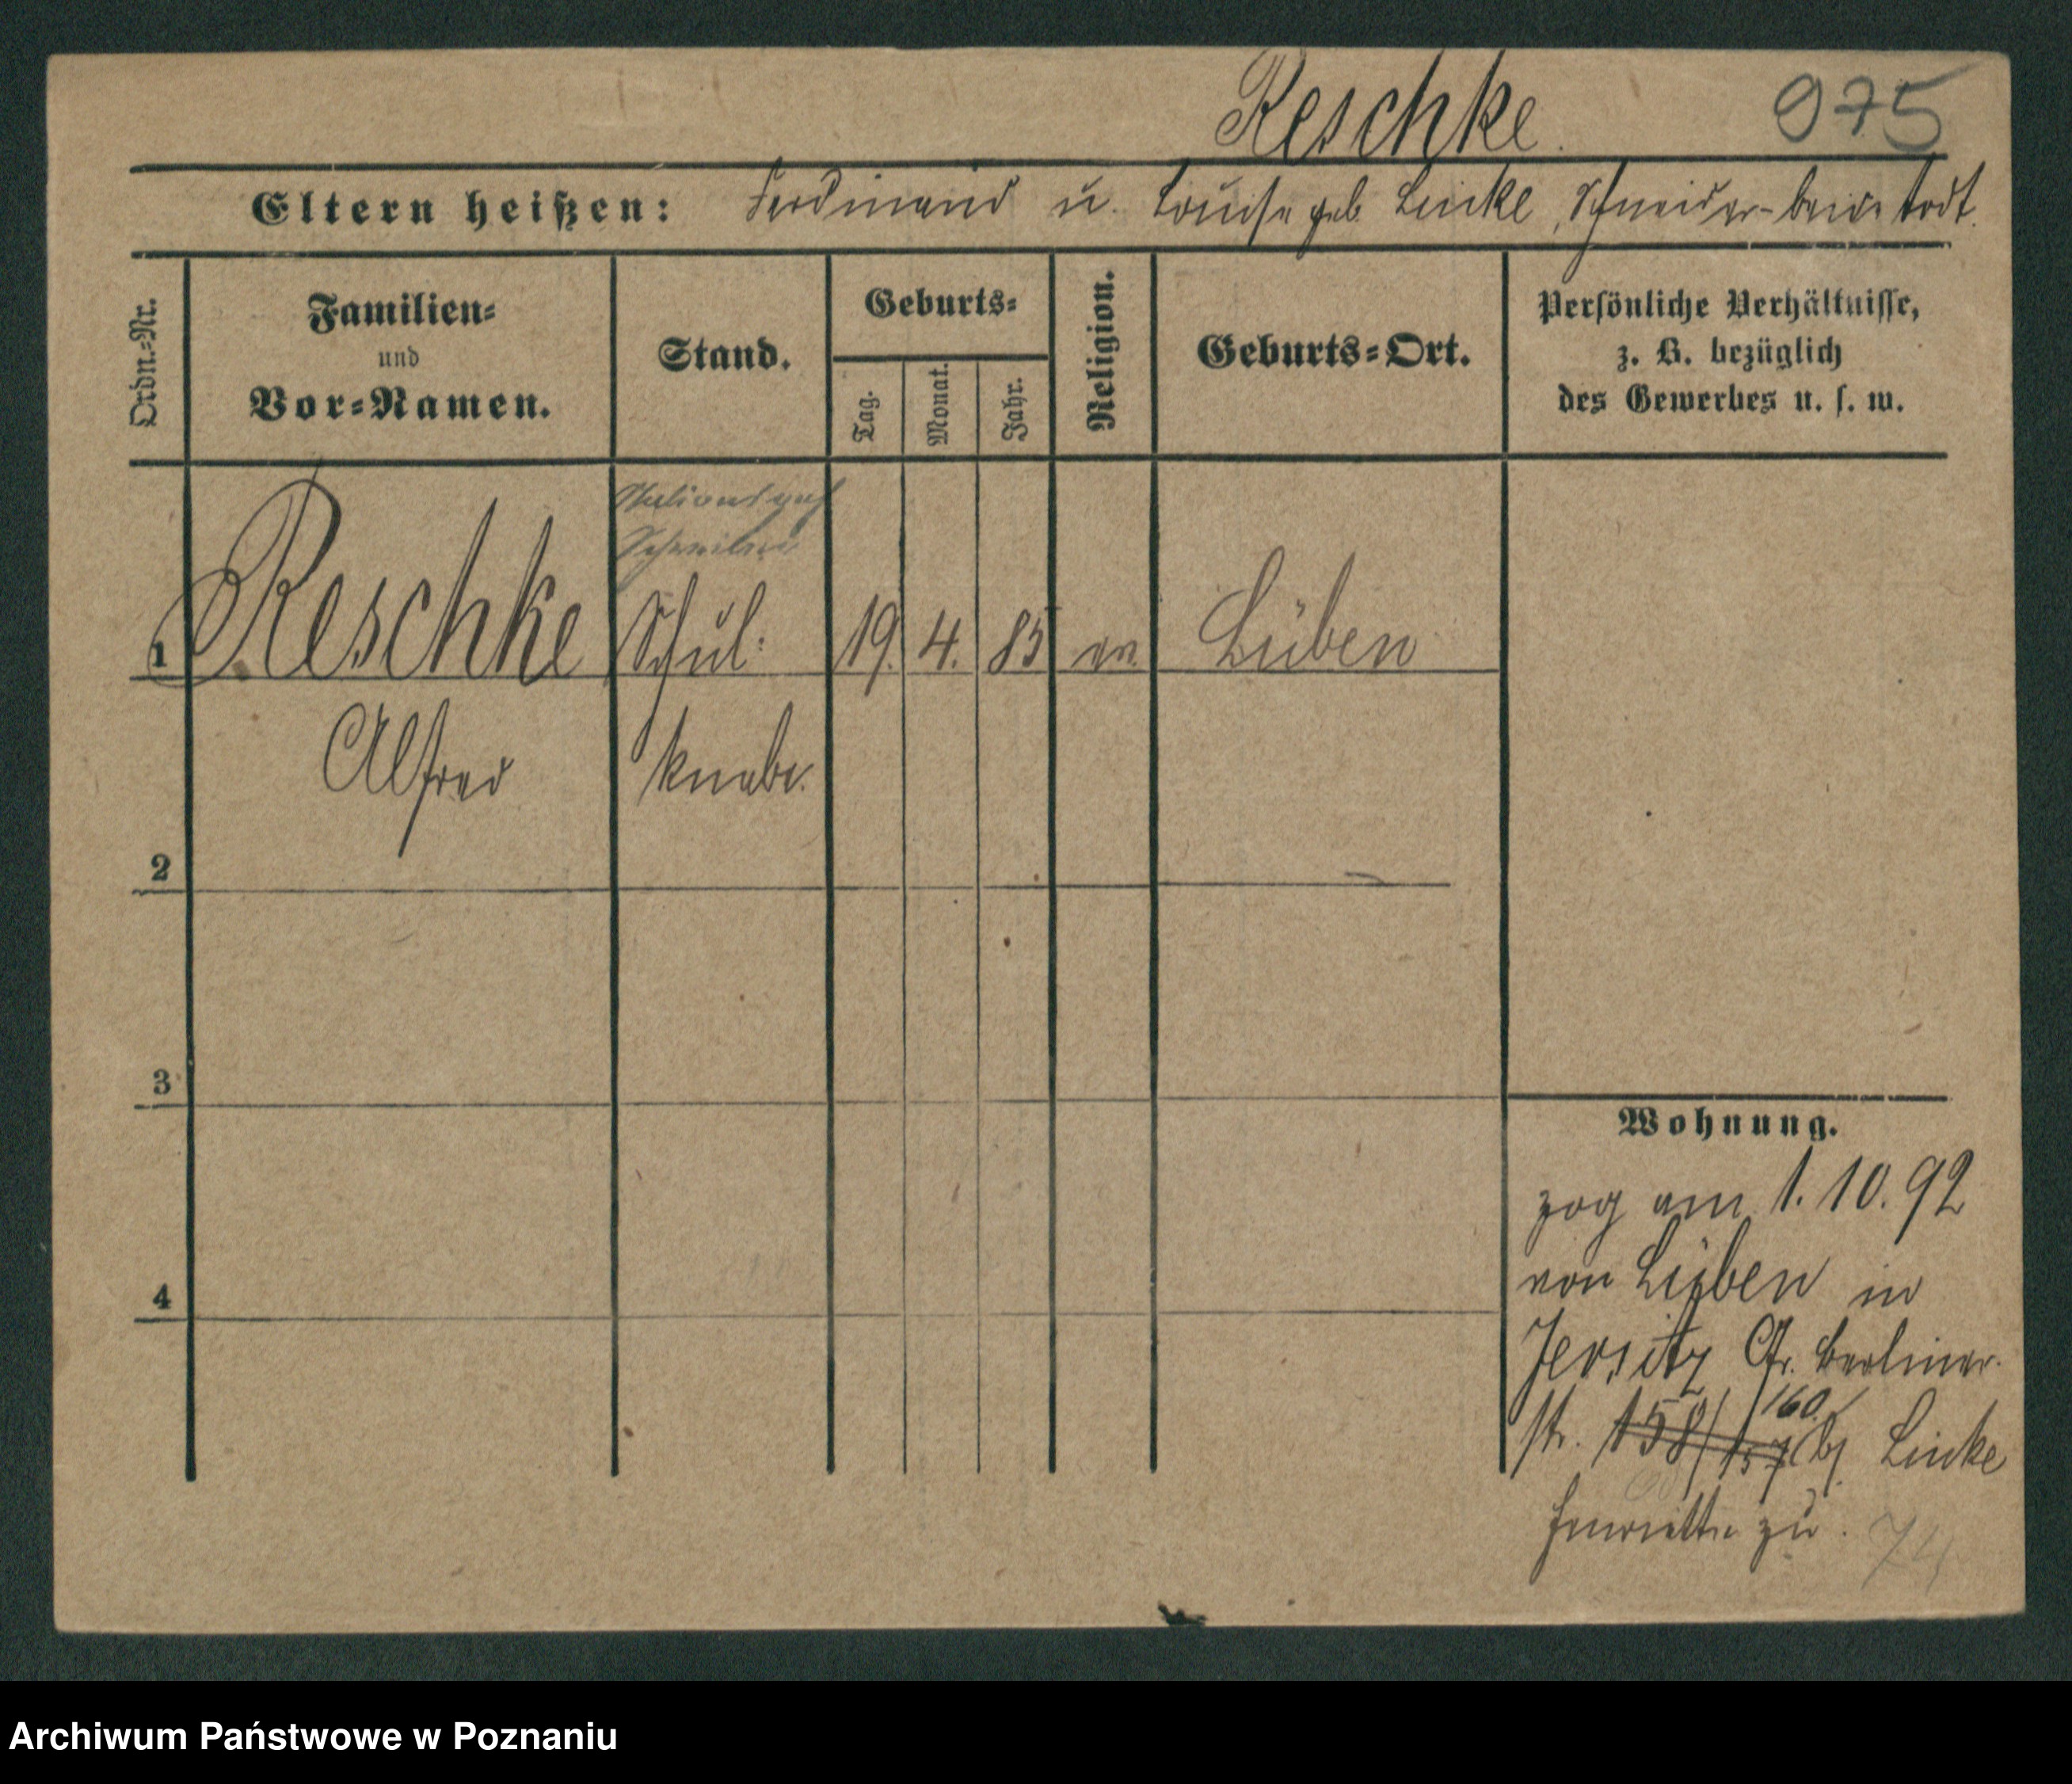 Reschke.
975
Eltern heißen: Ferdinand u. Louise geb. Linke, Schneider - beide todt.
Ordn.-Nr.
Familien-
und
Vor-Namen.
Stand.
Geburts-
Tag.
Monat.
Jahr.
Religion.
Geburts-Ort.
Persönliche Verhältnisse,
z. B. bezüglich
des Gewerbes u. s. w.
Schreiber
1 Reschke Schul- 19. 4. 85 ev. Lüben
Alfred knabe.
2
3
4
Wohnung.
zog am 1. 10. 92
von Lüben in
Jersitz Gr. Berliner-
str. 158/157 160. bei Linke
Henriette zu.
74
Archiwum Państwowe w Poznaniu